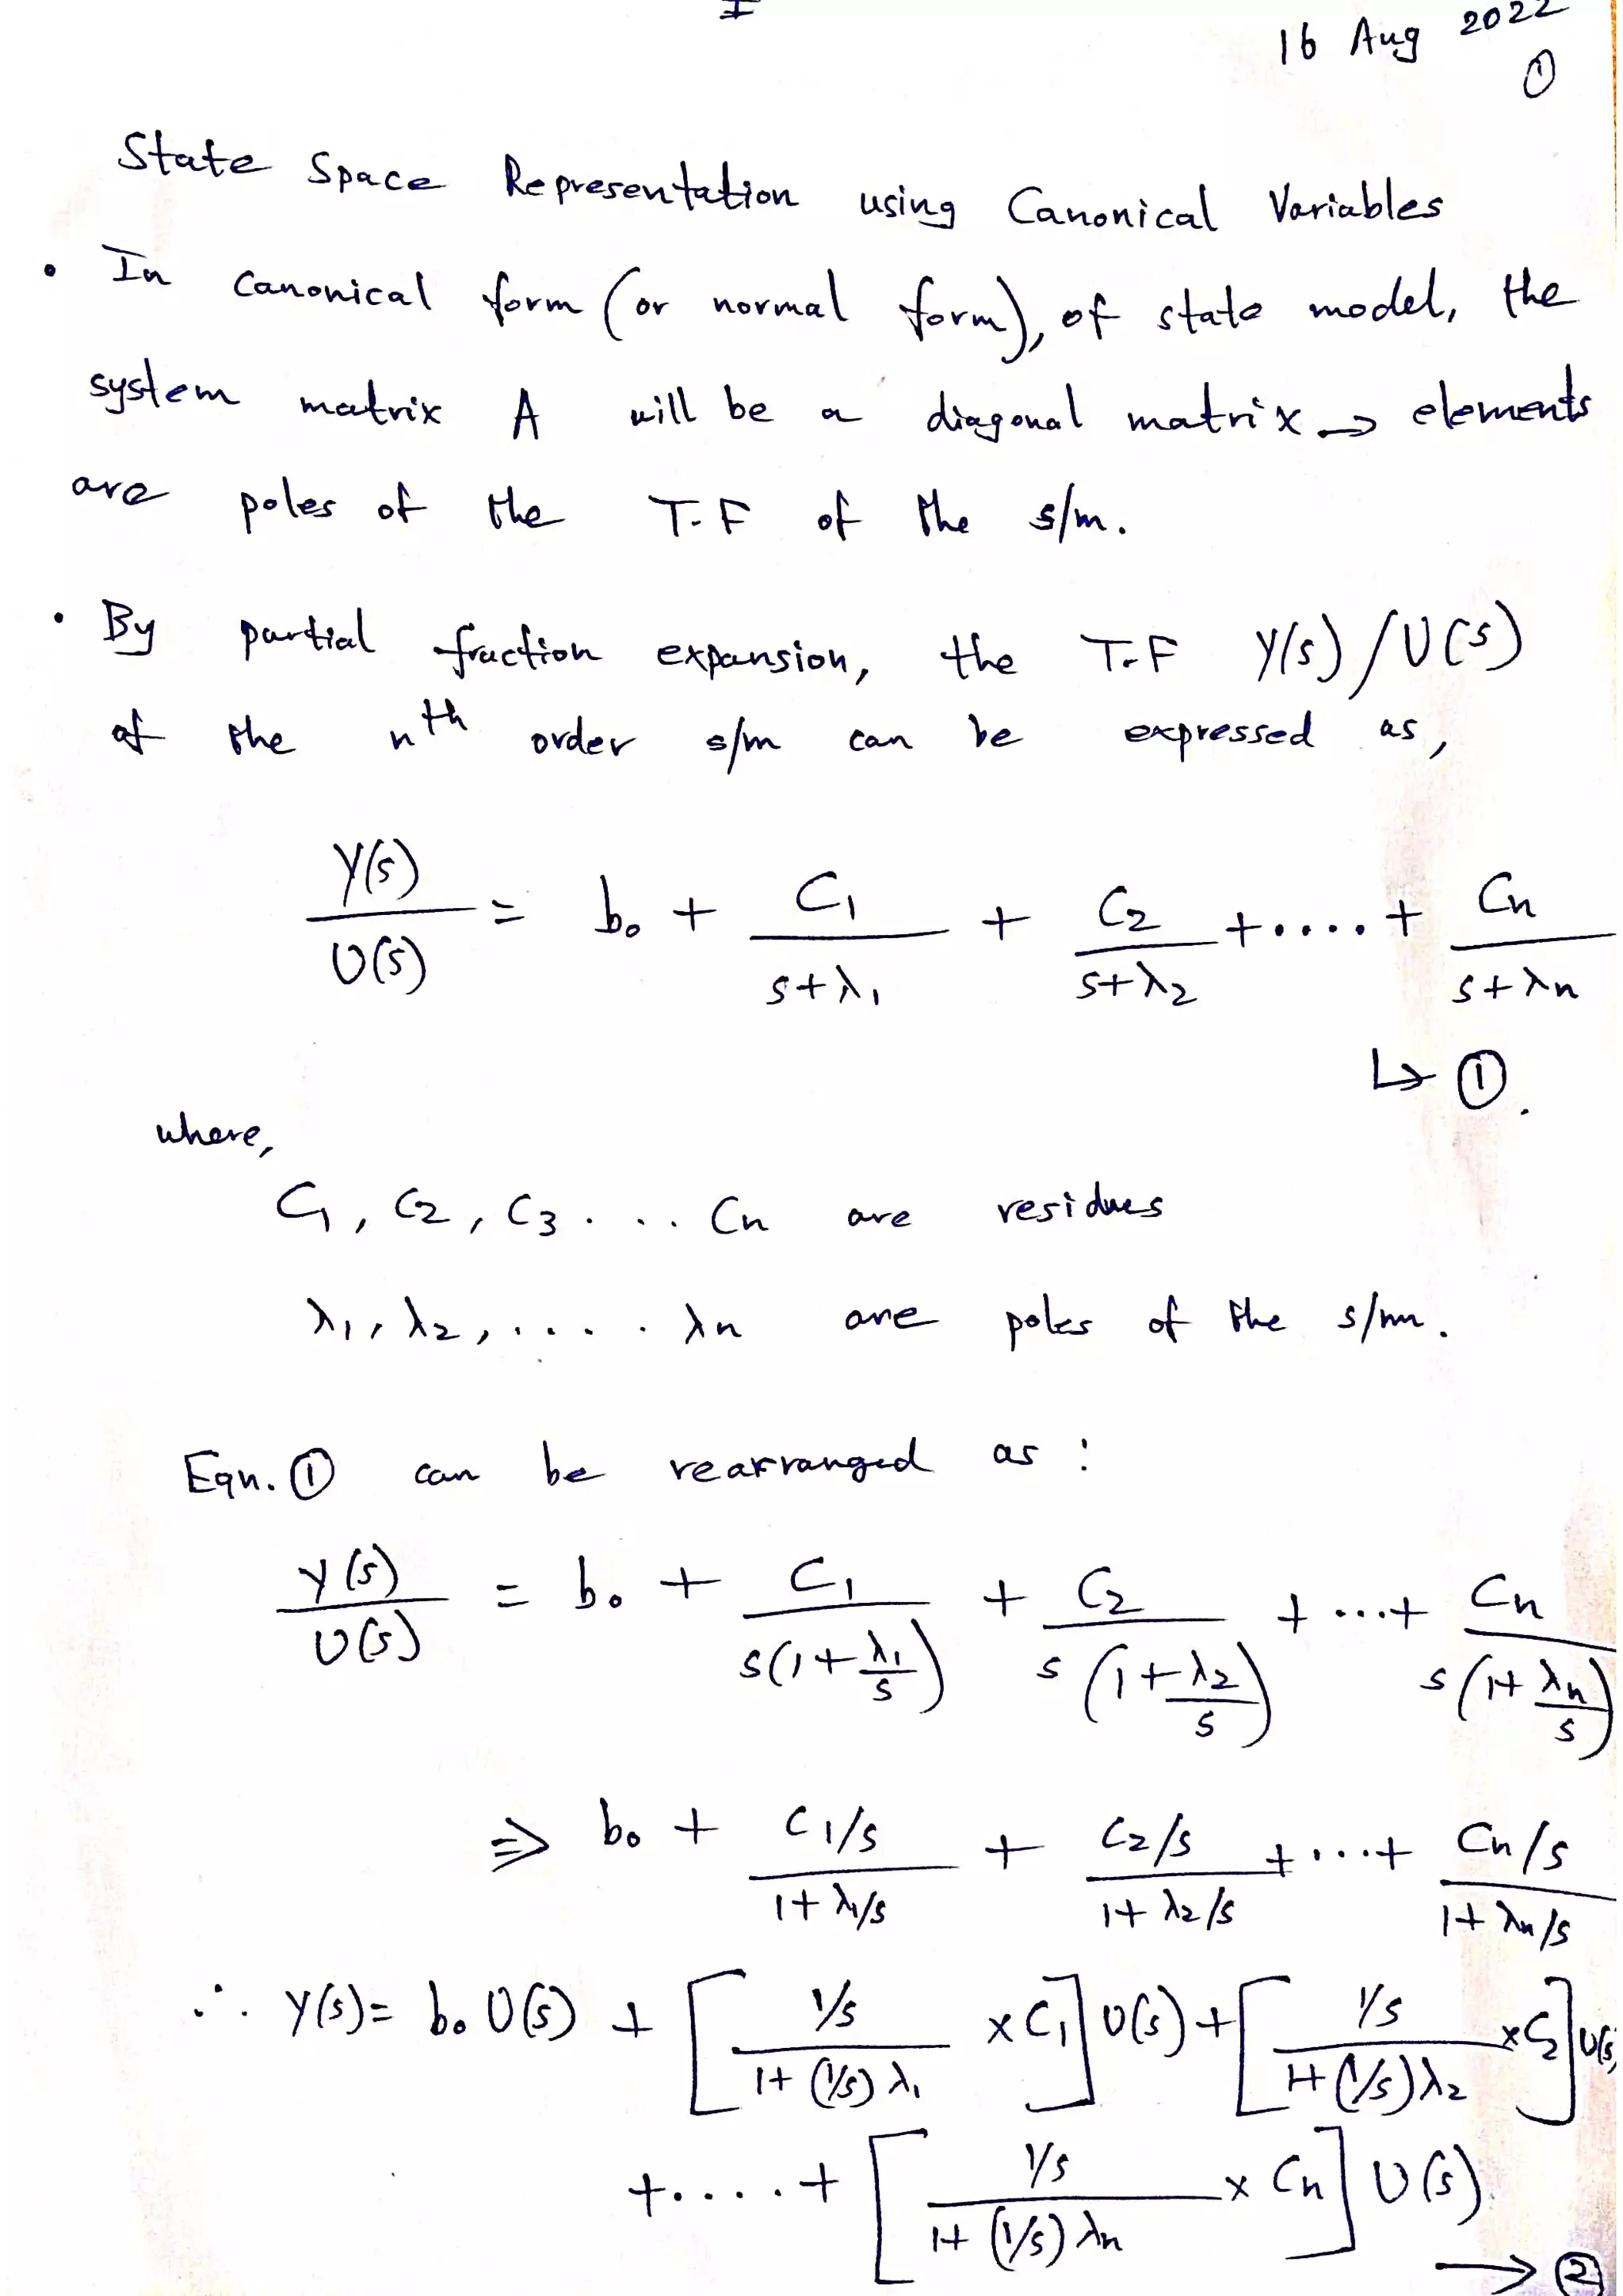 16 Aug 2022
①
State Space Representation using Canonical Variables
• In canonical form (or normal form), of state model, the
system matrix A will be a diagonal matrix → elements
are poles of the T.F of the s/m.
• By partial fraction expansion, the T.F Y(s)/U(s)
of the nth order s/m can be expressed as,
Y(s)/U(s) = b₀ + C₁/(s+λ₁) + C₂/(s+λ₂) +....+ Cn/(s+λn)
↳ ①.
where,
C₁, C₂, C₃ . ... Cn are residues
λ₁, λ₂, .... . λn are poles of the s/m.
Eqn. ① can be rearranged as :
Y(s)/U(s) = b₀ + C₁/(s(1+λ₁/s)) + C₂/(s(1+λ₂/s)) + ...+ Cn/(s(1+λn/s))
⇒ b₀ + (C₁/s)/(1+λ₁/s) + (C₂/s)/(1+λ₂/s) +...+ (Cn/s)/(1+λn/s)
∴ Y(s)= b₀ U(s) + [(1/s)/(1+(1/s)λ₁) × C₁] U(s) + [(1/s)/(1+(1/s)λ₂) × C₂] U(s)
+.....+ [(1/s)/(1+(1/s)λn) × Cn] U(s)
→ ②